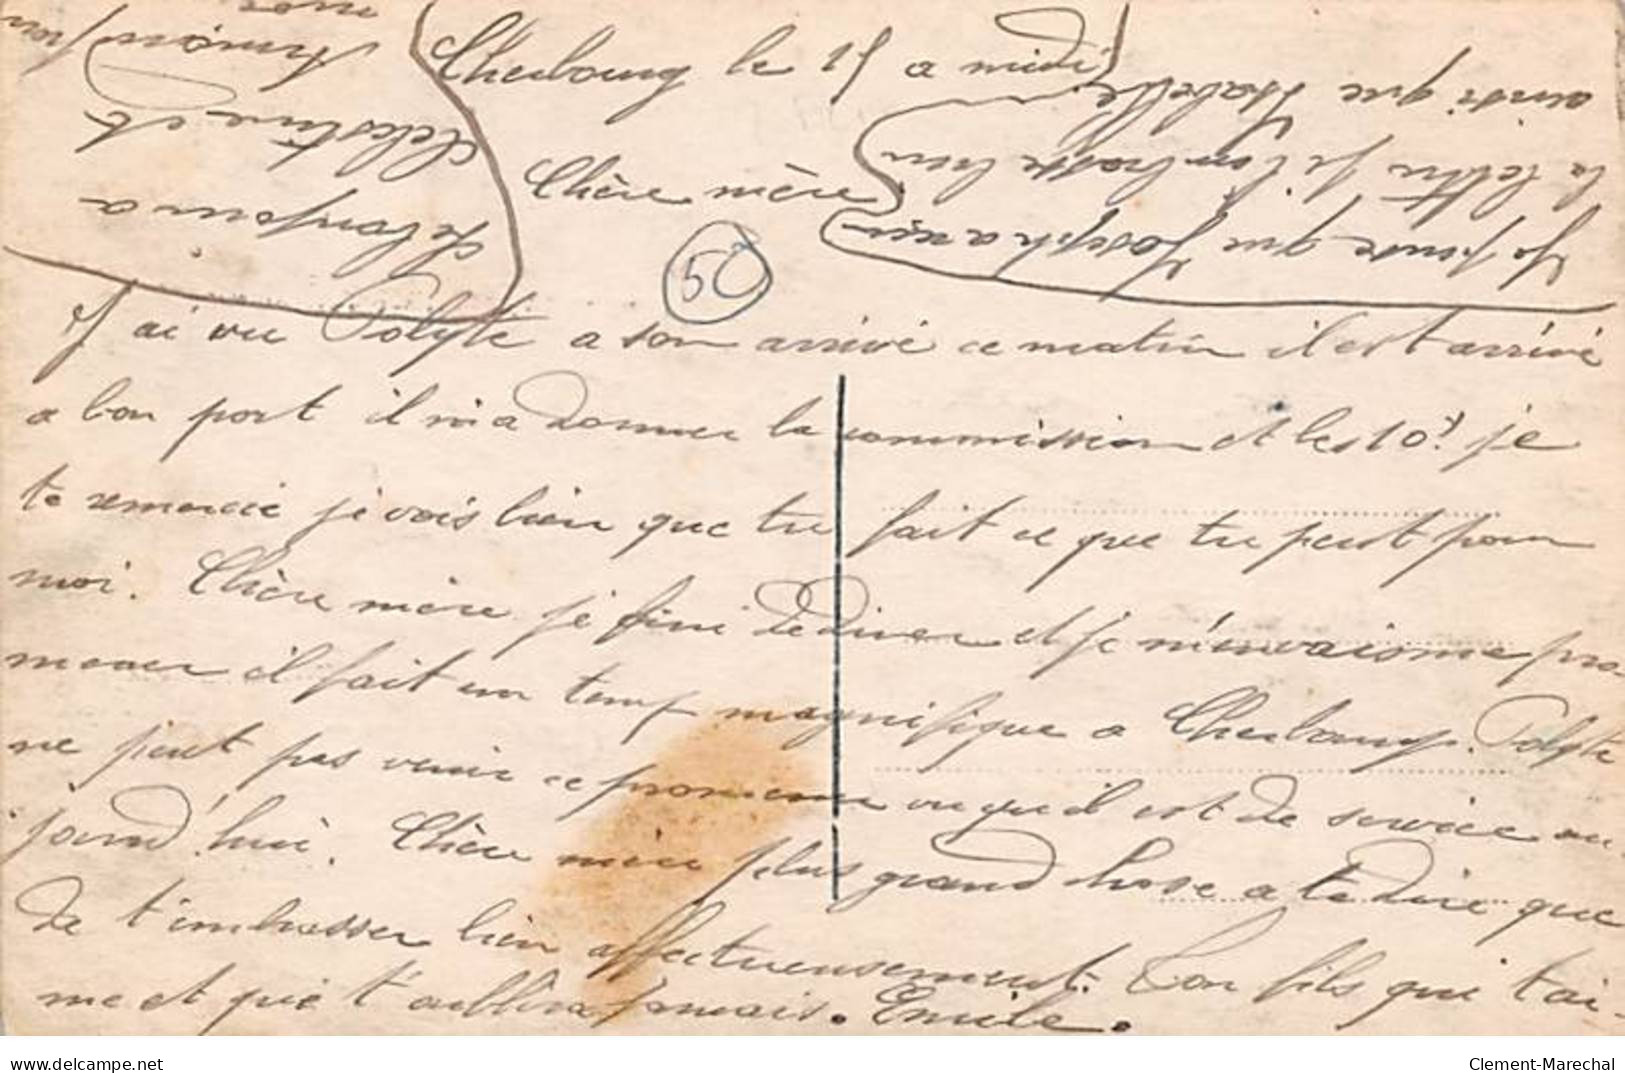 Cherbourg le 15 a midi
Chère mère
50
J'ai vu Polyte a son arrivé ce matin il est arrivé
a bon port il m'a donner la commission et les 10f. je
te remercie je vois bien que tu fait ce que tu peut pour
moi. Chère mère je fini de diner et je m'envais me pro-
mener il fait un temp magnifique a Cherbourg. Polyte
ne peut pas venir ce promener vu qu'il est de service au-
jourd'hui. Chère mère plus grand chose a te dire que
de t'embrasser bien affectueusement. Ton fils qui t'ai-
me et qui t'oublira jamais. Emile.
Je pense que Joseph a reçu
la lettre je l'embrasse bien
ainsi que Isabelle
Célestine et
Armand
delcampe.net
Clement-Marechal